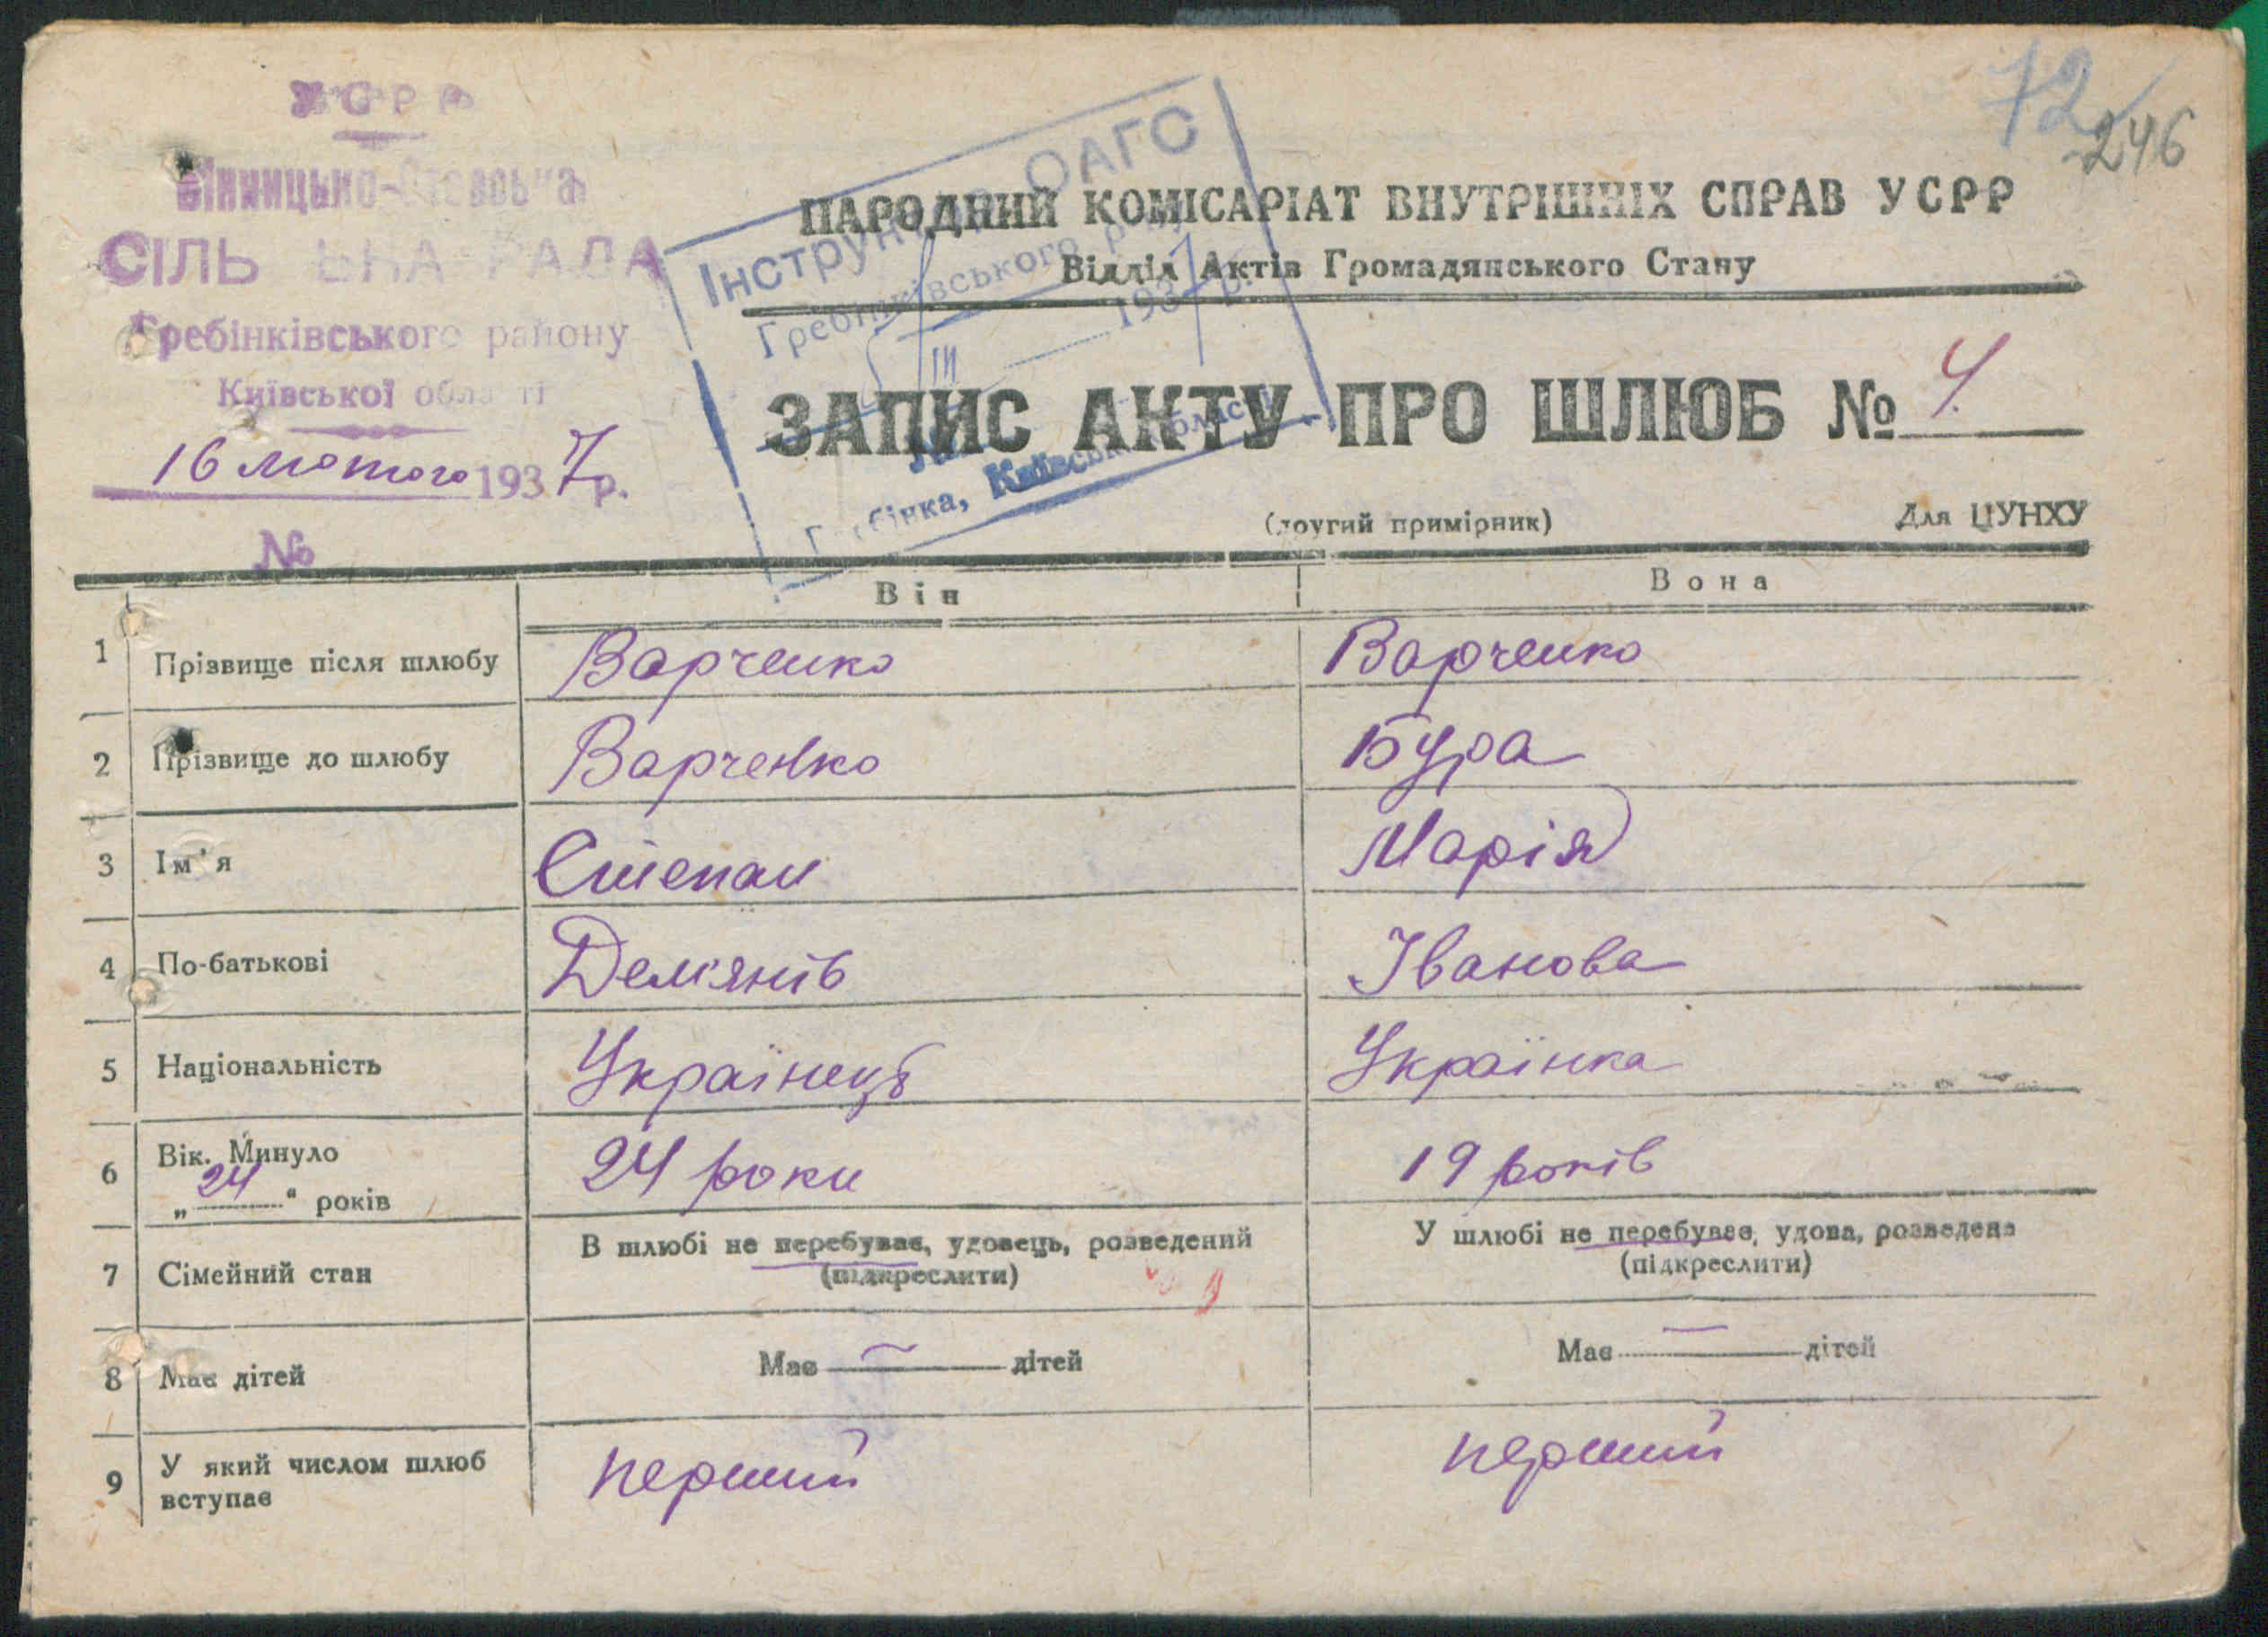 УСРР
Вінницько-Ставська
СІЛЬ ЬНА РАДА
Гребінківського району
Київської області
16 лютого 1937р.
№
72
246
Інструктор ОАГС
Гребінківського
1937 р.
III
№
Київськ області
НАРОДНИЙ КОМІСАРІАТ ВНУТРІШНІХ СПРАВ УСРР
Відділ Актів Громадянського Стану
ЗАПИС АКТУ ПРО ШЛЮБ № 4.
(другий примірник) Для ЦУНХУ
Він Вона
1 Прізвище після шлюбу Варченко Варченко
2 Прізвище до шлюбу Варченко Бура
3 Ім'я Степан Марія
4 По-батькові Дем'янів Іванова
5 Національність Українець Українка
6 Вік. Минуло „24“ років 24 роки 19 років
7 Сімейний стан В шлюбі не перебуває, удовець, розведений (підкреслити) У шлюбі не перебуває, удова, розведена (підкреслити)
8 Має дітей Має — дітей Має — дітей
9 У який числом шлюб вступає перший перший